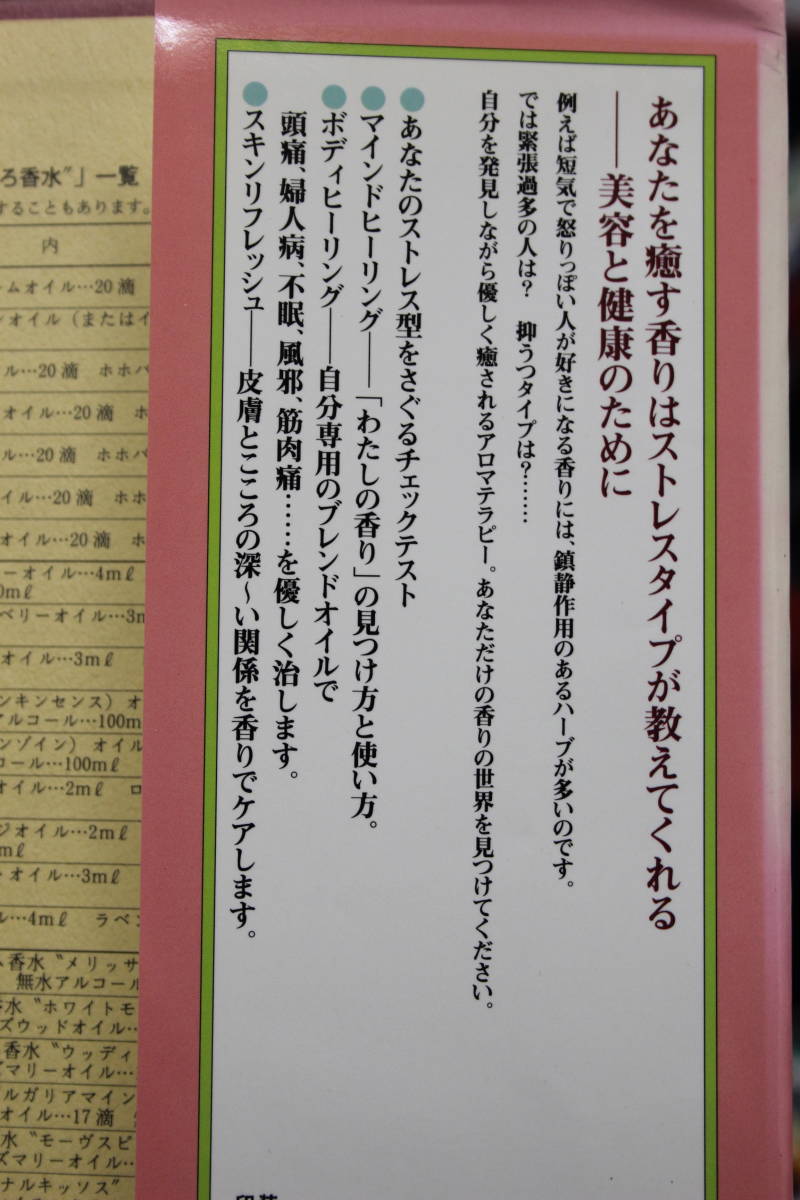 あなたを癒す香りはストレスタイプが教えてくれる
――美容と健康のために
例えば短気で怒りっぽい人が好きになる香りには、鎮静作用のあるハーブが多いのです。
では緊張過多の人は？　抑うつタイプは？……
自分を発見しながら優しく癒されるアロマテラピー。あなただけの香りの世界を見つけてください。
●あなたのストレス型をさぐるチェックテスト
●マインドヒーリング――「わたしの香り」の見つけ方と使い方。
●ボディヒーリング――自分専用のブレンドオイルで
頭痛、婦人病、不眠、風邪、筋肉痛……を優しく治します。
●スキンリフレッシュ――皮膚とこころの深〜い関係を香りでケアします。
ろ香水〟」一覧
することもあります。
内
ームオイル…20滴
ンオイル（またはイ
ル…20滴　ホホバ
オイル…20滴　ホ
ル…20滴　ホホバ
イル…20滴　ホホ
オイル…20滴　ホ
ーオイル…4mℓ
0mℓ
ベリーオイル…3m
オイル…3mℓ
ンキンセンス）オ
アルコール…100m
ンゾイン）オイル
コール…100mℓ
オイル…2mℓ　ロ
ジオイル…2mℓ
mℓ
・オイル…3mℓ
ル…4mℓ　ラベン
ム香水〝メリッサ
無水アルコール
香水〝ホワイトモ
ズウッドオイル…
香水〝ウッディ
ズマリーオイル…
ルガリアマイン
オイル…17滴
水〝モーヴスピ
ズマリーオイル…
ナルキッソス〟